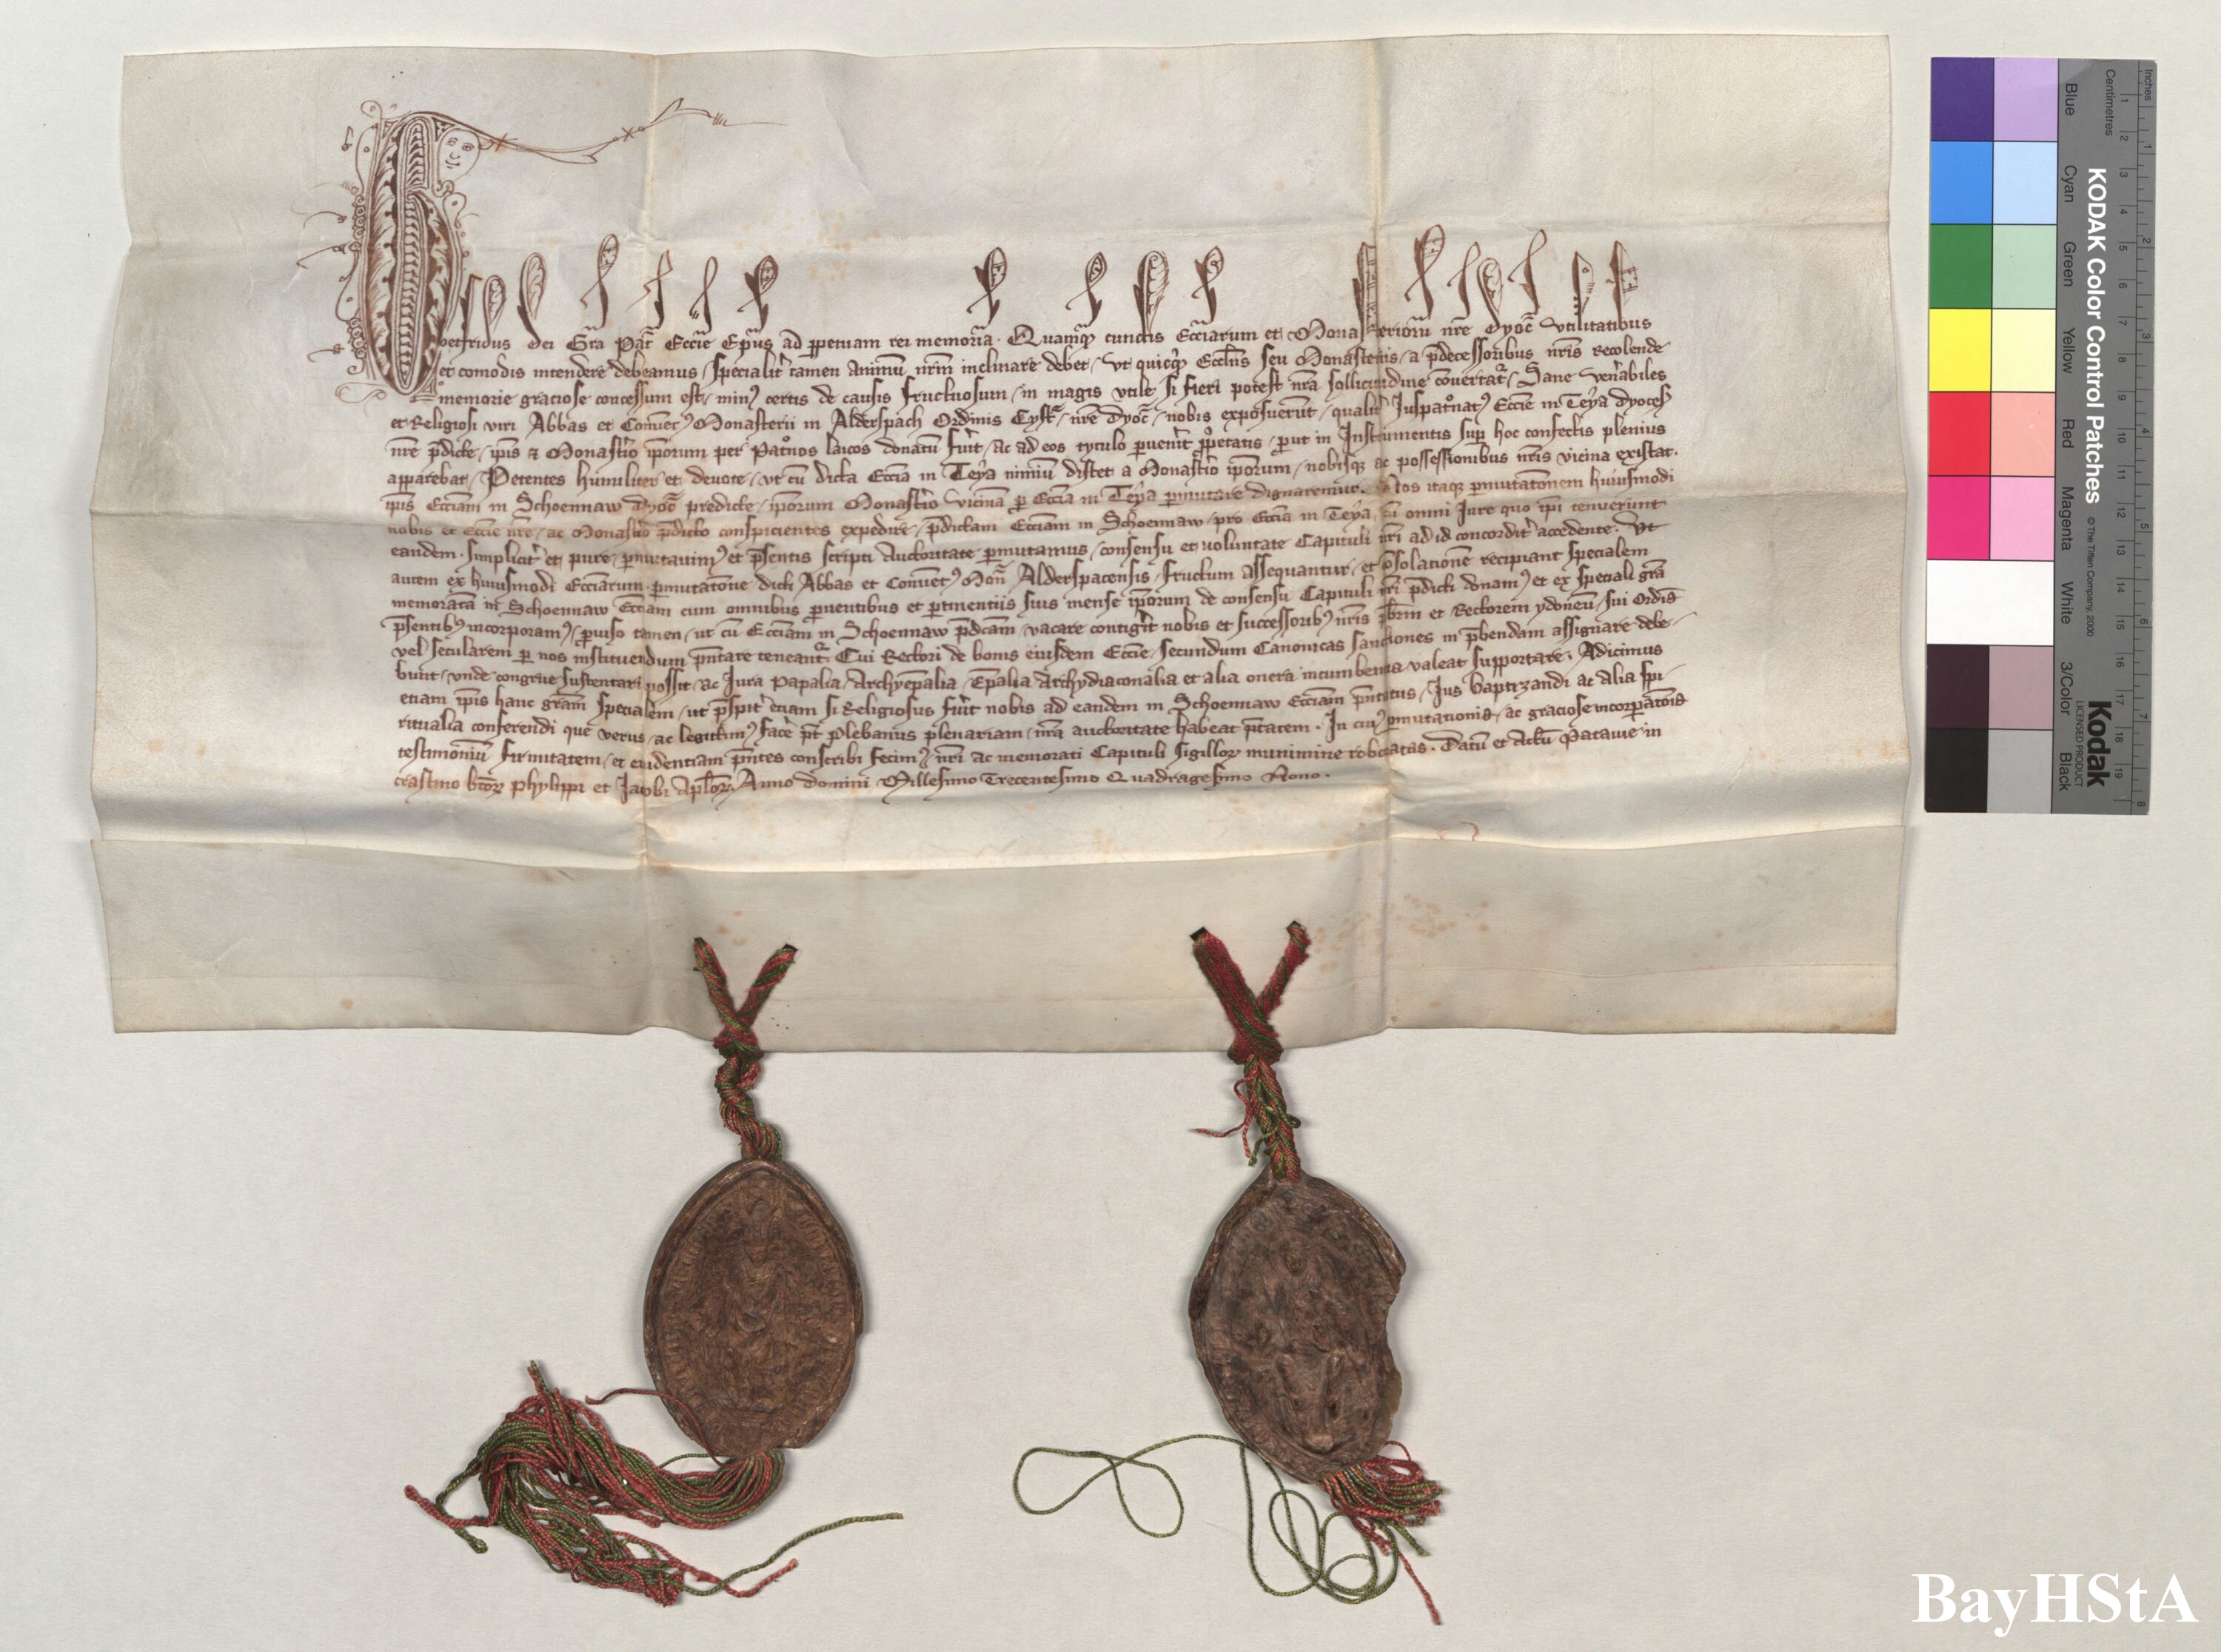 Gotfridus dei Gra Pat Eccie Epus ad ppetuam rei memoria. Quamqz cunctis Ecciarum et Monasteriorum nre dyoc vtilitatibus
et comodis intendere debeamus, specialit tamen Animu nrm inclinare debet, vt quicqz Ecclijs seu Monasterijs, a pdecessoribus nris recolende
memorie graciose concessum est, min9 certis de causis fructuosum, in magis vtile si fieri potest nra sollicitudine couertat, Sane venabiles
et Religiosi viri Abbas et Conuet9 Monasterii in Alderspach Ordinis Cyst, nre dyoc, nobis exposuerut, qualit Juspatnat9 Eccie in Teya dyoces
nre pdicte, ipis et Monastio ipporum per Patnos laicos donatu fuit, ac ad eos tytulo puenit ppetatis, put in Instrumentis sup hoc confectis plenius
apparebat, Petentes humiliter et deuote, vt cu dicta Eccia in Teya nimiu distet a Monastio ipporum, nobisqz ac possessionibus nris vicina existat.
ipis Ecciam in Schoennaw dyoc predicte, ipporum Monastio vicina p Eccia in Teya pmutare dignaremur. Nos itaqz pmutatonem huiusmodi
nobis et Eccie nre, ac Monastio pdicto conspicientes expedire, pdictam Ecciam in Schoennaw, pro Eccia in Teya, cu omni Jure quo ipi tenuerunt
eandem. simplicit et pure, pmutauim9 et psentis scripti Auctoritate pmutamus, consensu et voluntate Capituli nri ad id concordit accedente. Vt
autem ex huiusmodi Ecciarum pmutatone dicti Abbas et Conuet9 Mon Alderspacensis, fructum assequantur, et psolatione recipiant specialem
memoratam in Schoennaw Ecciam cum omnibus puentibus et ptinentiis suis mense ipporum de consensu Capituli nri pdicti donam9 et ex speciali gra
psentib9 incorporam9, puiso tamen, ut cu Ecciam in Schoennaw pdcam, vacare contigit nobis et successorib9 nris pbrm et Rectorem ydoneu, sui Ordis
vel secularem p nos instituendum pntare teneant. Cui Rectori de bonis eiusdem Eccie, secundum Canonicas sanctiones in pbendam assignare debe-
bunt, vnde congrue sustentari possit, ac Jura Papalia, Archyepalia, Epalia, Archydiaconalia et alia onera incumbentia valeat supportare. Adicimus
etiam ipis hanc gram specialem, ut pspit etiam si Religiosus fuit nobis ad eandem in Schoennaw Ecciam pntatus, Jus baptizandi ac Alia spi-
ritualia conferendi que verus, ac legitim9 face pt Plebanus plenariam, nra auctoritate habeat ptatem. In cui9 pmutationis, ac graciose incorpatois
testimoniu firmitatem, et euidentiam pntes conscribi fecim9, nri ac memorati Capituli sigillor munimine roboratas. Datu et Actu Patauie in
crastino btor Phylippi et Jacobi Aplor. Anno domini Millesimo Trecentesimo Quadragesimo Nono.
Inches
Centimetres
KODAK Color Control Patches
© The Tiffen Company, 2000
Kodak
LICENSED PRODUCT
Blue Cyan Green Yellow Red Magenta White 3/Color Black
BayHStA